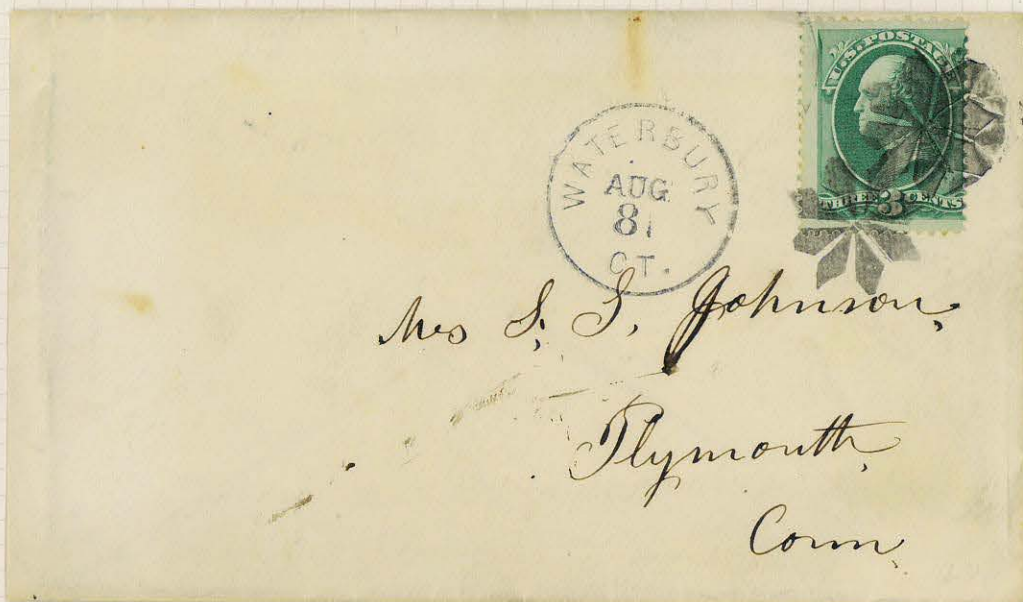 U.S. POSTAGE
THREE 3 CENTS
WATERBURY
AUG
8
CT.
Mrs S. S. Johnson,
Plymouth,
Conn